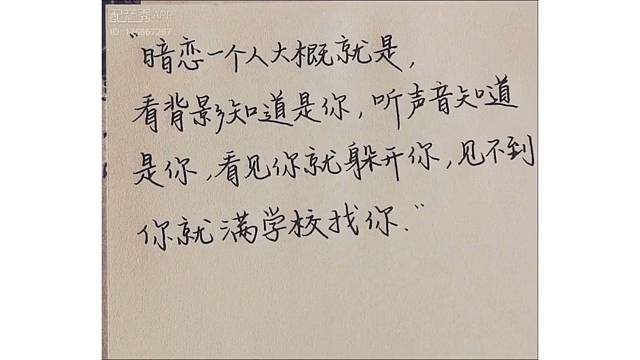 配音秀APP
"暗恋一个人大概就是,
看背影知道是你,听声音知道
是你,看见你就躲开你,见不到
你就满学校找你."